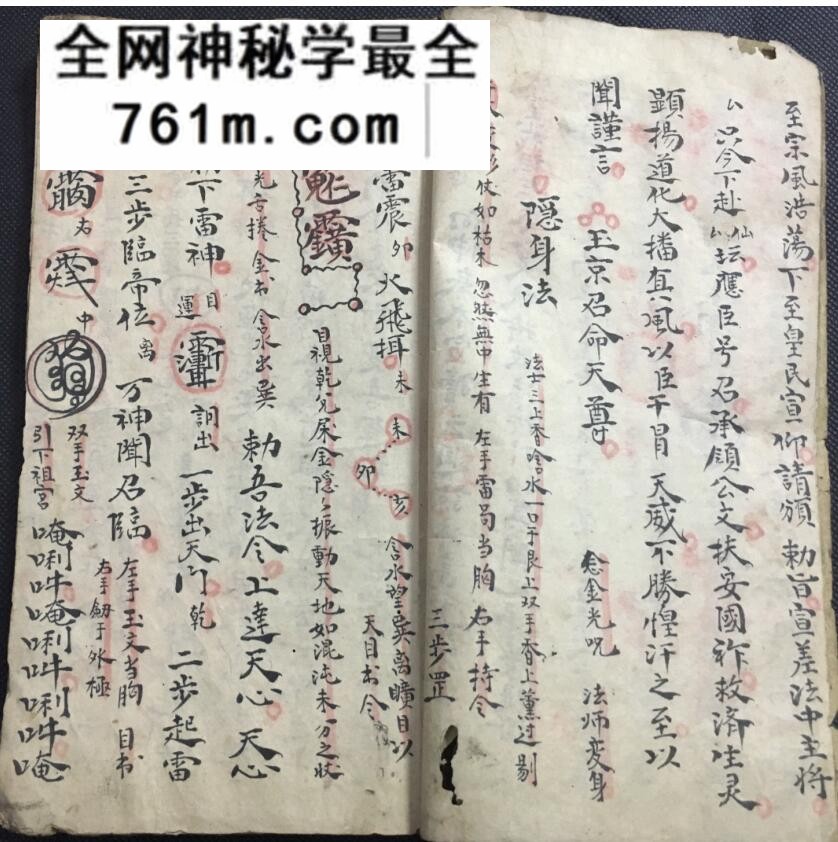 全网神秘学最全
761m.com
至宗風浩蕩下至皇民宣仰請頒 勅旨宣差法中主将
厶只今下赴 仙厶 坛應臣号召承領公文扶妥國祚救済生灵
顕揚道化大播真風以臣干冒 天威不勝惶汗之至以
聞謹言 玉京召命天尊 念金光呪 法师变身
隐身法 法士三上香唅水一口于艮上双手香上薰过剔
仗如枯木 忽然無中生有 左手雷局当胸 右手持令
三步罡
雷震 卯 火飛挕 未 未 卯 亥 含水望巽离曠目以
天目书令
目視乾兌屎金隠〻振動天地如混沌未分之状
光舌捲金书含水出巽 勅吾法令上達天心 天心
下雷神 目 運 詗出 一步出天门 乾 二步起雷
三步臨帝位 离 万神聞召臨 左手玉文当胸 目书
右手劔于外極
右 中 双手玉文
引下祖宫
唵唎吽唵唎吽唎吽唵